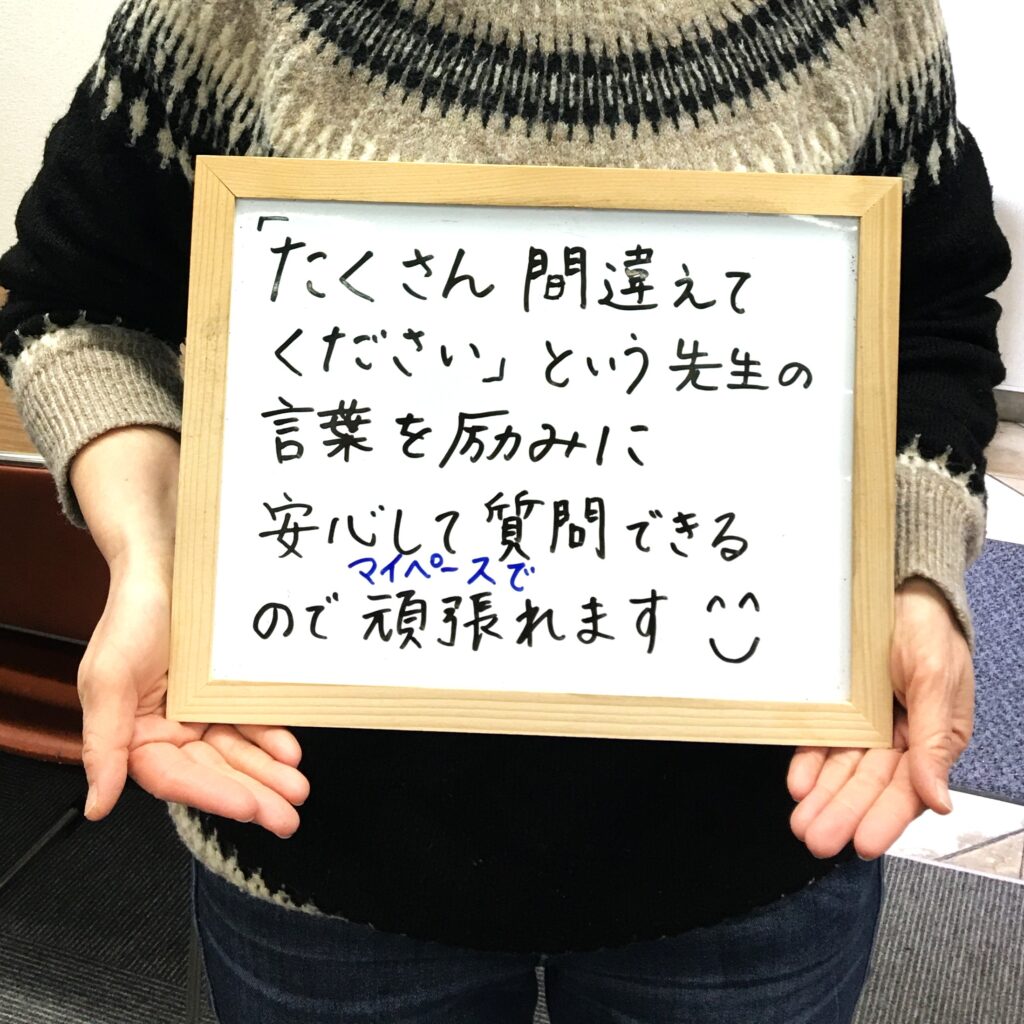 「たくさん 間違えて
ください」という先生の
言葉を励みに
安心して質問できる
マイペースで
ので頑張れます ^^